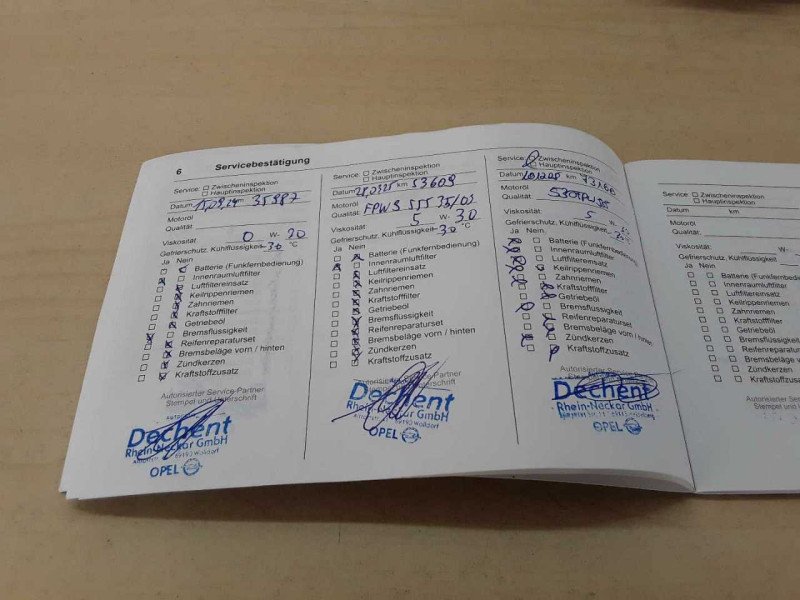 6 Servicebestätigung
Service: Zwischeninspektion
Hauptinspektion
Datum 15.09.24 km 35987
Motoröl
Qualität
Viskosität 0 W- 20
Gefrierschutz, Kühlflüssigkeit -30 °C
Ja Nein
Batterie (Funkfernbedienung)
Innenraumluftfilter
Luftfiltereinsatz
Keilrippenriemen
Zahnriemen
Kraftstofffilter
Getriebeöl
Bremsflüssigkeit
Reifenreparaturset
Bremsbeläge vorn / hinten
Zündkerzen
Kraftstoffzusatz
Autorisierter Service-Partner
Stempel und Unterschrift
Dechent
Rhein-Neckar GmbH
69190 Walldorf
OPEL
Service: Zwischeninspektion
Hauptinspektion
Datum km 53609
Motoröl
Qualität
Viskosität 5 W- 30
Gefrierschutz, Kühlflüssigkeit -30 °C
Ja Nein
Batterie (Funkfernbedienung)
Innenraumluftfilter
Luftfiltereinsatz
Keilrippenriemen
Zahnriemen
Kraftstofffilter
Getriebeöl
Bremsflüssigkeit
Reifenreparaturset
Bremsbeläge vorn / hinten
Zündkerzen
Kraftstoffzusatz
Autorisierter Service-Partner
Stempel und Unterschrift
Dechent
Rhein-Neckar GmbH
69190 Walldorf
OPEL
Service: Zwischeninspektion
Hauptinspektion
Datum km
Motoröl
Qualität
Viskosität 5 W-
Gefrierschutz, Kühlflüssigkeit
Ja Nein
Batterie (Funkfernbedienung)
Innenraumluftfilter
Luftfiltereinsatz
Keilrippenriemen
Zahnriemen
Kraftstofffilter
Getriebeöl
Bremsflüssigkeit
Reifenreparaturset
Bremsbeläge vorn / hinten
Zündkerzen
Kraftstoffzusatz
Dechent
Rhein-Neckar GmbH
OPEL
Service: Zwischeninspektion
Hauptinspektion
Datum km
Motoröl
Qualität
Viskosität W-
Gefrierschutz, Kühlflüssigkeit
Ja Nein
Batterie (Funkfern
Innenraumluftfilter
Luftfiltereinsatz
Keilrippenriemen
Zahnriemen
Kraftstofffilter
Getriebeöl
Bremsflüssigkeit
Reifenreparatur
Bremsbeläge vo
Zündkerzen
Kraftstoffzusatz
Autorisierter Service
Stempel und Unter